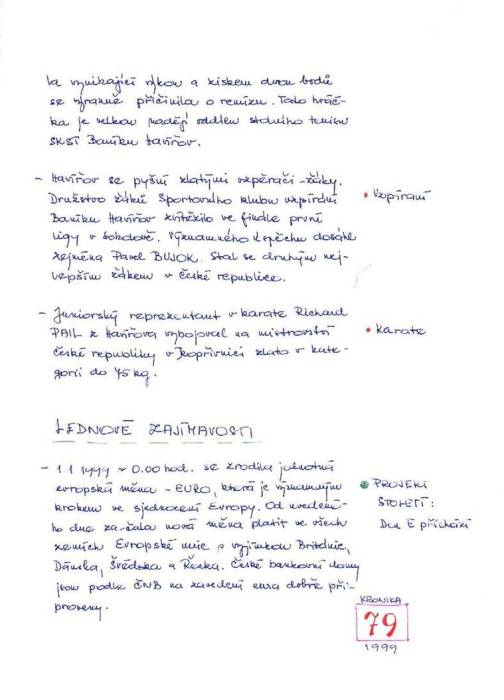 la vynikající výkon a ziskem dvou bodů
se výrazně přičinila o remízu. Tato hráč-
ka je velkou nadějí oddílu stolního tenisu
SKSI Baníku Havířov.
- Havířov se pyšní zlatými vzpěrači-žáky.
Družstvo žáků Sportovního klubu vzpírání
Baníku Havířov zvítězilo ve finále první
ligy v Sokolově. Významného úspěchu dosáhl
zejména Pavel BUJOK. Stal se druhým nej-
lepším žákem v České republice.
• Vzpírání
- Juniorský reprezentant v karate Richard
PAIL z Havířova vybojoval na mistrovství
České republiky v Kopřivnici zlato v kate-
gorii do 75 kg.
• Karate
LEDNOVÉ ZAJÍMAVOSTI
- 1.1 1999 v 0.00 hod. se zrodila jednotná
evropská měna - EURO, která je významným
krokem ve sjednocení Evropy. Od uvedené-
ho dne začala nová měna platit ve všech
zemích Evropské unie s výjimkou Británie,
Dánska, Švédska a Řecka. České bankovní domy
jsou podle ČNB na zavedení eura dobře při-
praveny.
• PROJEKT
STOLETÍ:
Den E přichází
KRONIKA
79
1999